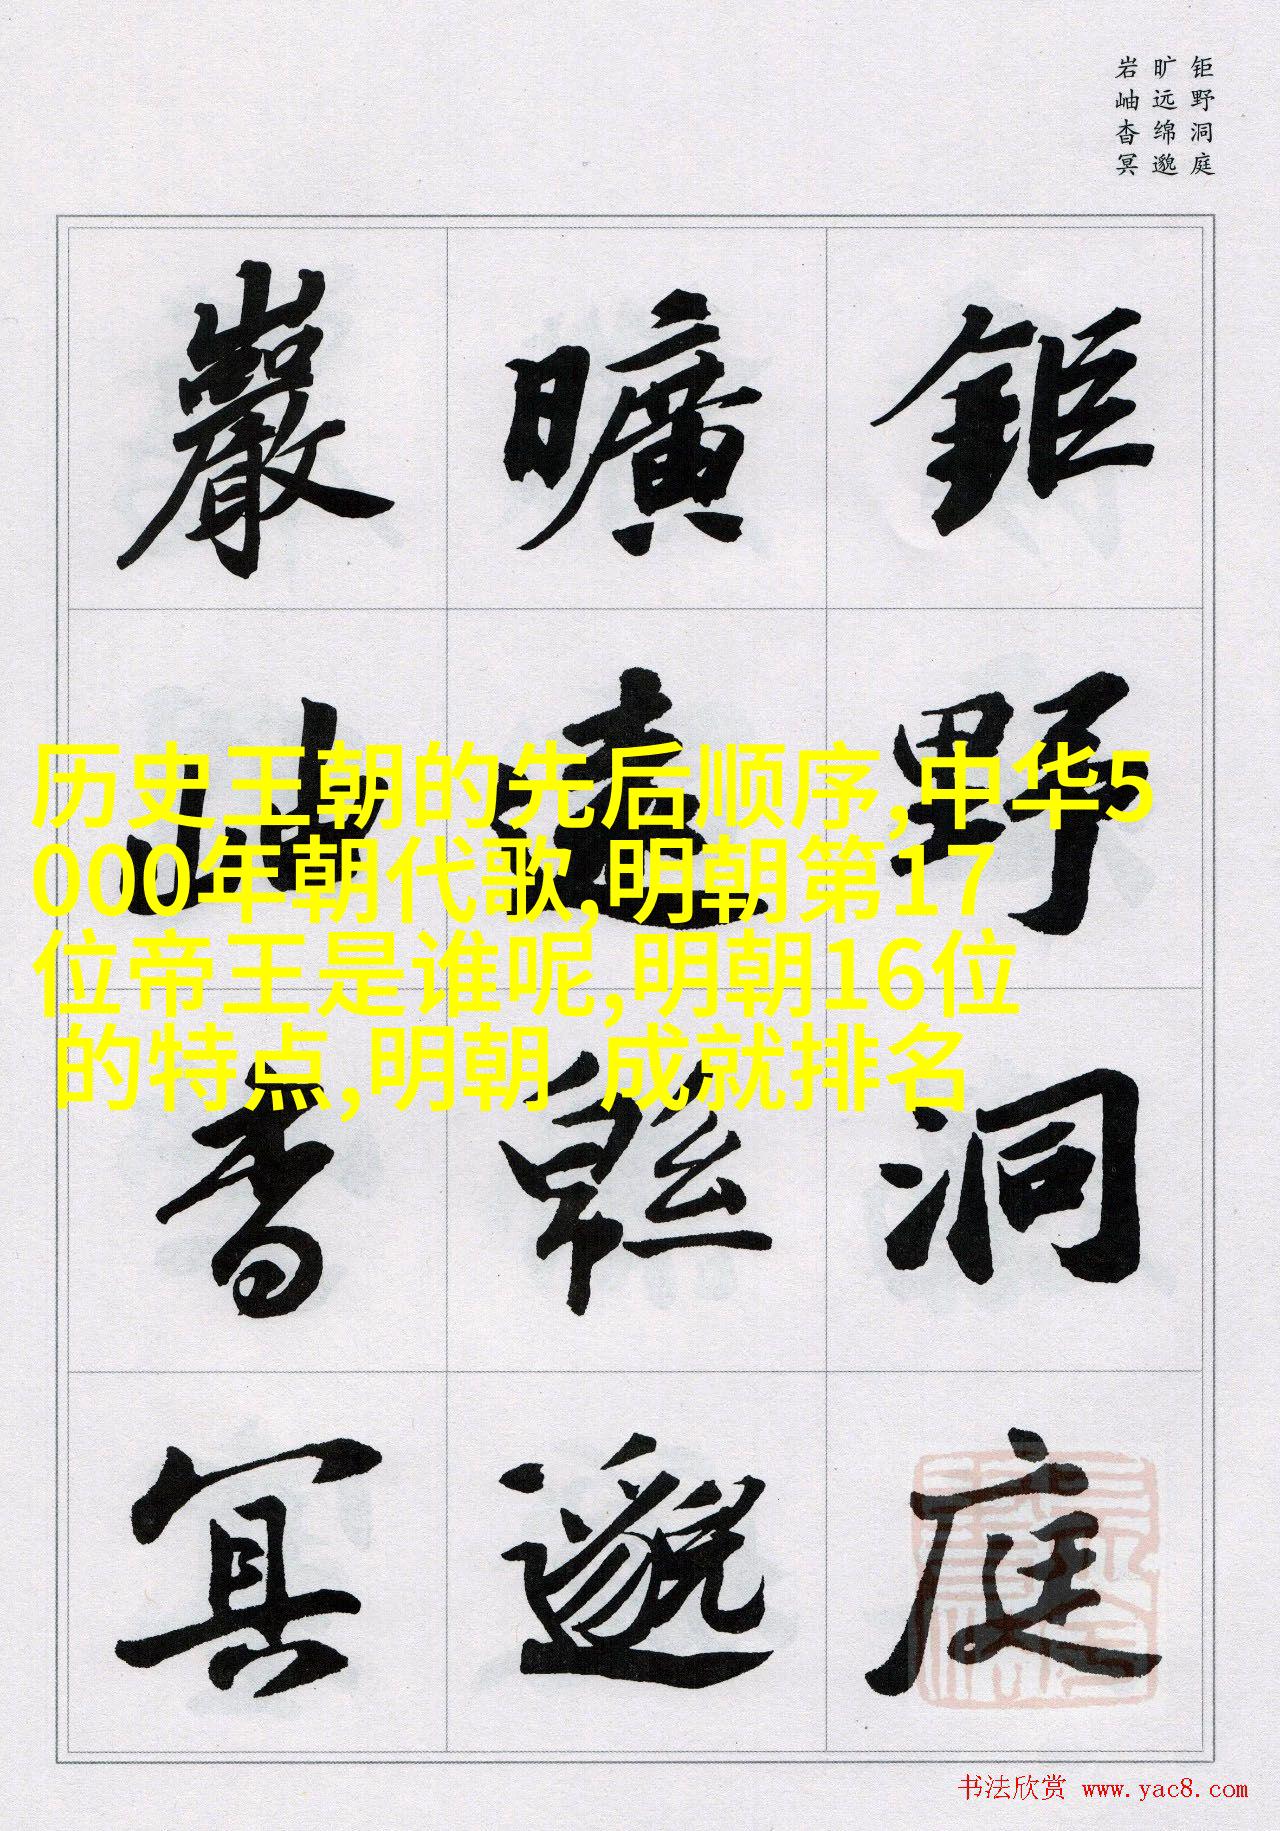 钜野洞庭
旷远绵邈
岩岫杳冥
鉅野洞庭
曠遠緜邈
巖岫杳冥
历史王朝的先后顺序,中华5
000年朝代歌,明朝第17
位帝王是谁呢,明朝16位
的特点,明朝 成就排名
书法欣赏 www.yac8.com